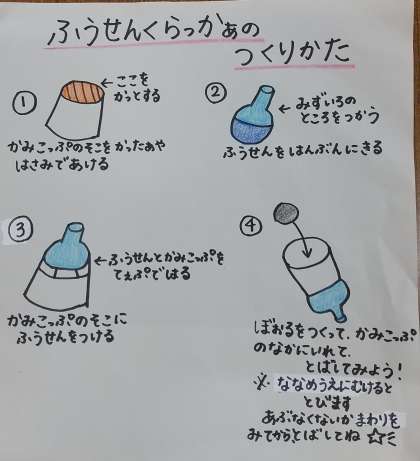 ふうせんくらっかぁの
つくりかた
①
←ここを
かっとする
かみこっぷのそこをかったぁや
はさみであける
②
←みずいろの
ところをつかう
ふうせんをはんぶんにきる
③
←ふうせんとかみこっぷを
てぇぷではる
かみこっぷのそこに
ふうせんをつける
④
ぼぉるをつくって、かみこっぷ
のなかにいれて、
とばしてみよう!
※ななめうえにむけると
とびます
あぶなくないかまわりを
みてからとばしてね☆